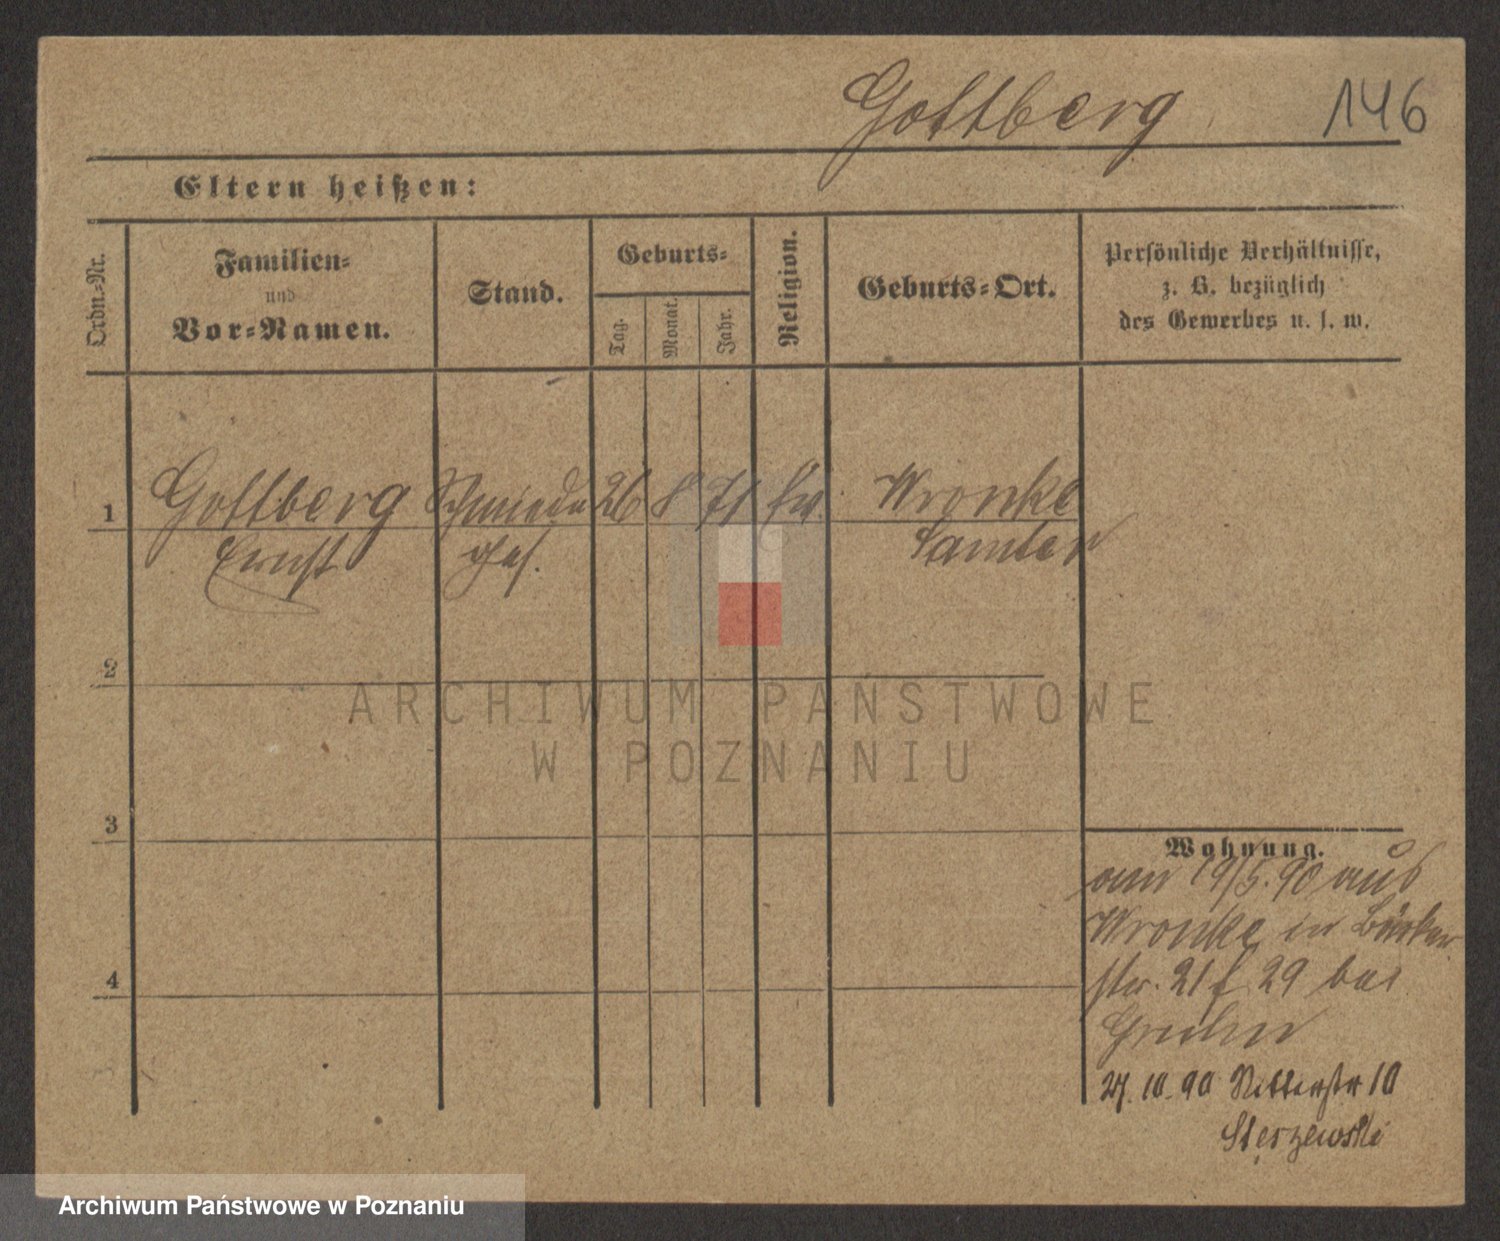 Gottberg 146
Eltern heißen:
Ordn.-Nr.
Familien-
und
Vor-Namen.
Stand.
Geburts-
Tag.
Monat.
Jahr.
Religion.
Geburts-Ort.
Persönliche Verhältnisse,
z. B. bezüglich
des Gewerbes u. s. w.
1 Gottberg Schmiede 26 8 71 Wronke
Ernst ges. Samter
2
ARCHIWUM PAŃSTWOWE
W POZNANIU
3
4
Wohnung.
am 19/5. 90 aus
Wronke in Bäcker
str. 21 f 29 bei
27. 10. 90 Ritterstr 10
Sterzewski
Archiwum Państwowe w Poznaniu